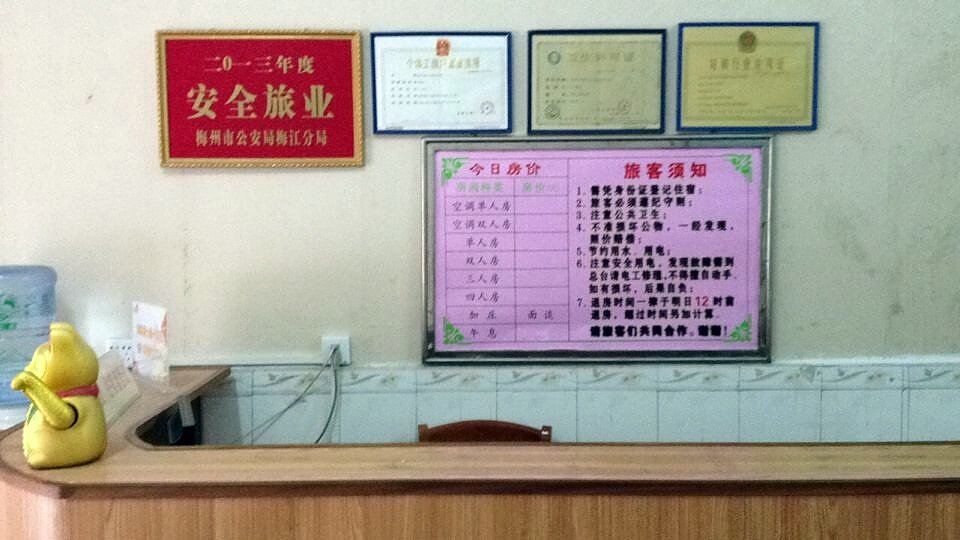 二〇一三年度
安全旅业
梅州市公安局梅江分局
个体工商户营业执照
卫生许可证
特种行业许可证
今日房价
房间种类 房价
空调单人房
空调双人房
单人房
双人房
三人房
四人房
加床 面谈
午息
旅客须知
1、需凭身份证登记住宿；
2、旅客必须遵纪守则；
3、注意公共卫生；
4、不准损坏公物，一经发现，
照价赔偿；
5、节约用水、用电；
6、注意安全用电，发现故障需到
总台请电工修理，不得擅自动手．
如有损坏，后果自负；
7、退房时间一律于明日12时前
退房，超过时间另加计算．
请旅客们共同合作。谢谢！